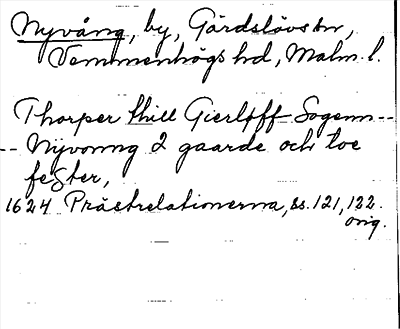 Nyvång, by, Gärdslövs sn,
Vemmenhögs hd, Malm. l.
Thorper thill Gierløff Sogenn--
-- Nyvonng 2 gaarde och toe
fester,
1624 Prästrelationerna, ss. 121, 122.
orig.